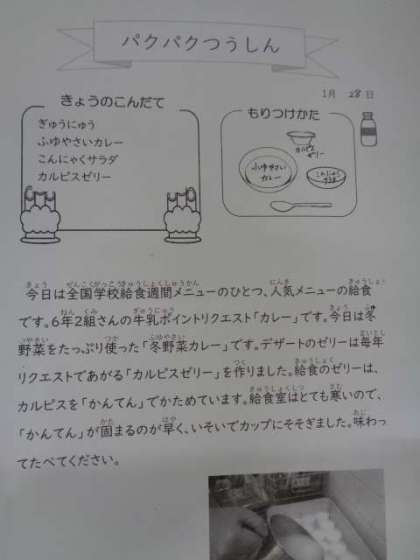 パクパクつうしん
1月 28日
きょうのこんだて
ぎゅうにゅう
ふゆやさいカレー
こんにゃくサラダ
カルピスゼリー
もりつけかた
カルピス
ゼリー
ふゆやさい
カレー
こんにゃく
サラダ
今日は全国学校給食週間メニューのひとつ、人気メニューの給食
です。6年2組さんの牛乳ポイントリクエスト「カレー」です。今日は冬
野菜をたっぷり使った「冬野菜カレー」です。デザートのゼリーは毎年
リクエストであがる「カルピスゼリー」を作りました。給食のゼリーは、
カルピスを「かんてん」でかためています。給食室はとても寒いので、
「かんてん」が固まるのが早く、いそいでカップにそそぎました。味わっ
てたべてください。